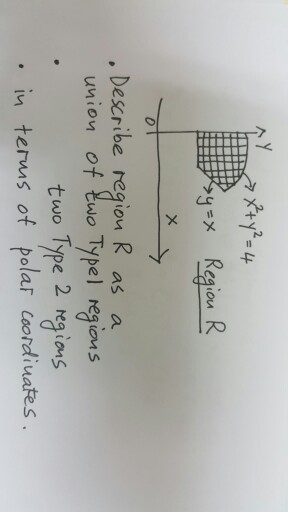 y
x²+y²=4
y=x
Region R
0
x
• Describe region R as a
union of two Type1 regions
• two Type 2 regions
• in terms of polar coordinates.